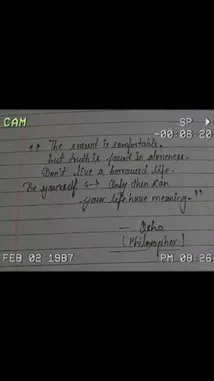 CAM
SP
-00:06:20
“ The crowd is comfortable.
but truth is found in aloneness.
Don't live a borrowed life.
Be yourself → Only then can
your life have meaning. ”
— Osho
(Philosopher)
FEB 02 1987
PM 08:26